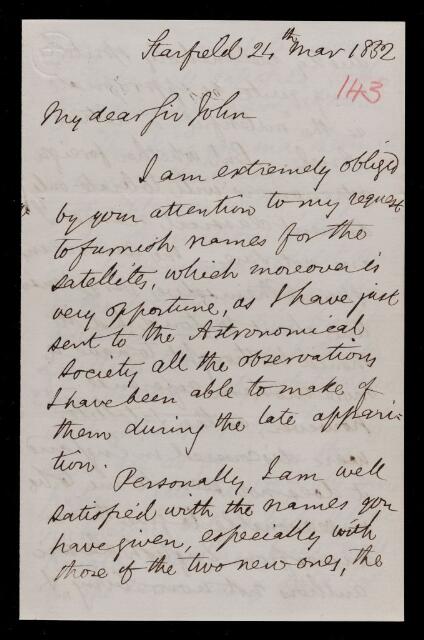 Starfield 24th Mar 1852
143
My dear Sir John
I am extremely obliged
by your attention to my request
to furnish names for the
satellites, which moreover is
very opportune, as I have just
sent to the Astronomical
Society all the observations
I have been able to make of
them during the late appari-
tion.
Personally, I am well
satisfied with the names you
have given, especially with
those of the two new ones, the